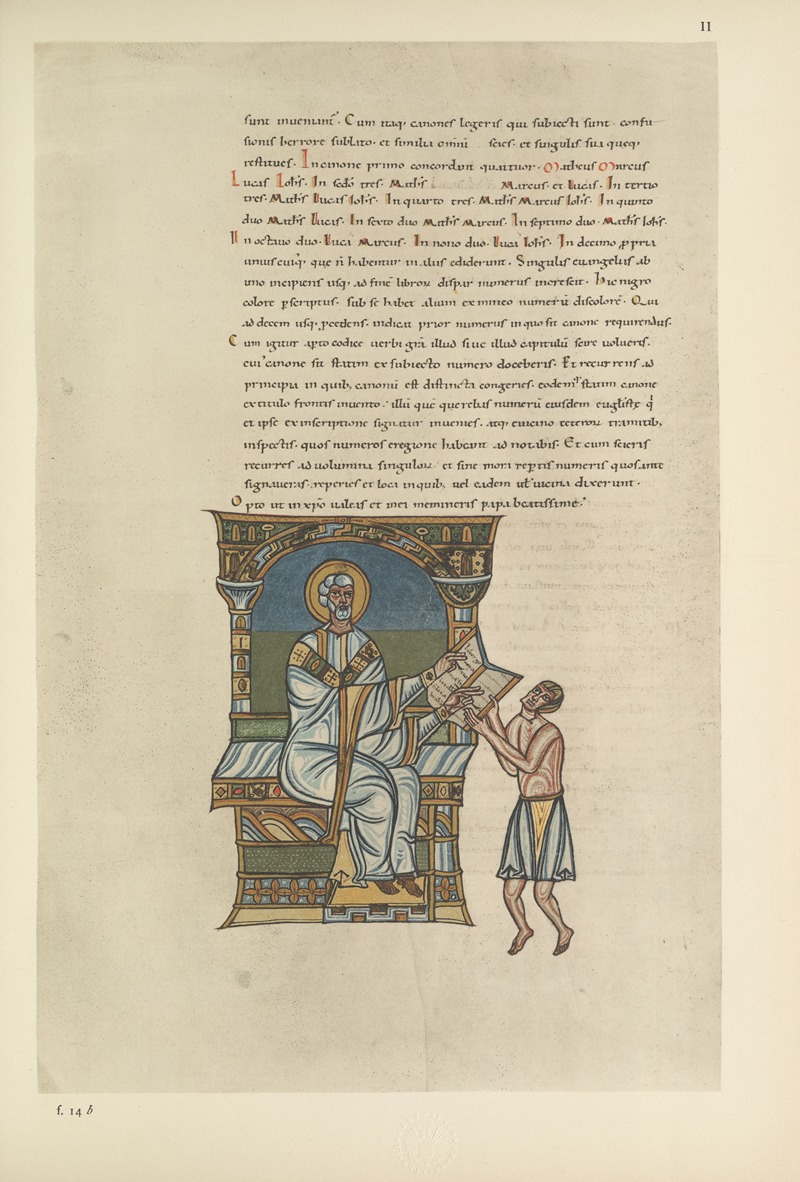 II
sunt inueniunt̃. Cum itaq; canones legeris qui subiecti sunt confu
sionis herrore sublato. et similia omniũ scies. et singulis sua queq;
restitues. In canone primo concordant quattuor. Matheus Marcus
Lucas Iohs̄. In scđo tres. Maths̄ Marcus. et Lucas. In tertio
tres. Maths̄ Lucas Iohs̄. In quarto tres. Maths̄ Marcus Iohs̄. In quinto
duo Maths̄ Lucas. In sexto duo Maths̄ Marcus. In septimo duo. Maths̄ Iohs̄.
In octauo duo. Luca Marcus. In nono duo. Luca Iohs̄. In decimo ꝓpria
unus cuiq; que ñ habentur in aliis ediderunt. Singulis euangeliis ab
uno incipiens usq; ad finẽ librou dispar numerus increscit. Hic nigro
colore pscriptus. sub se habet alium ex mineo numerũ discolorẽ. Qui
ad decem usq; pcedens. indicat prior numerus in quo sit canone requirendus.
Cum igitur apto codice uerbi grã illud siue illud capitulũ scire uolueris.
cui' canone sit statim ex subiecto numero doceberis. Et recurrens ad
principia in quib; canonũ est distincta congeries. eodemq; statim canone
ex titulo frontis inuento. illũ quẽ querebas numerũ eiusdem euglistę q
et ipse ex inscriptione signatur inuenies. atq; e uicino ceterou tramitib;
inspectis. quos numeros e regione habeant ad notabis. Et cum scieris
recurres ad uolumina singulou et sine mora reptis numeris quos ante
signaueras. reperies et loca in quib; uel eadem uł uicina dixerunt.
Opto ut in xp̄o ualeas et mei memineris papa beatissime.
f. 14 b